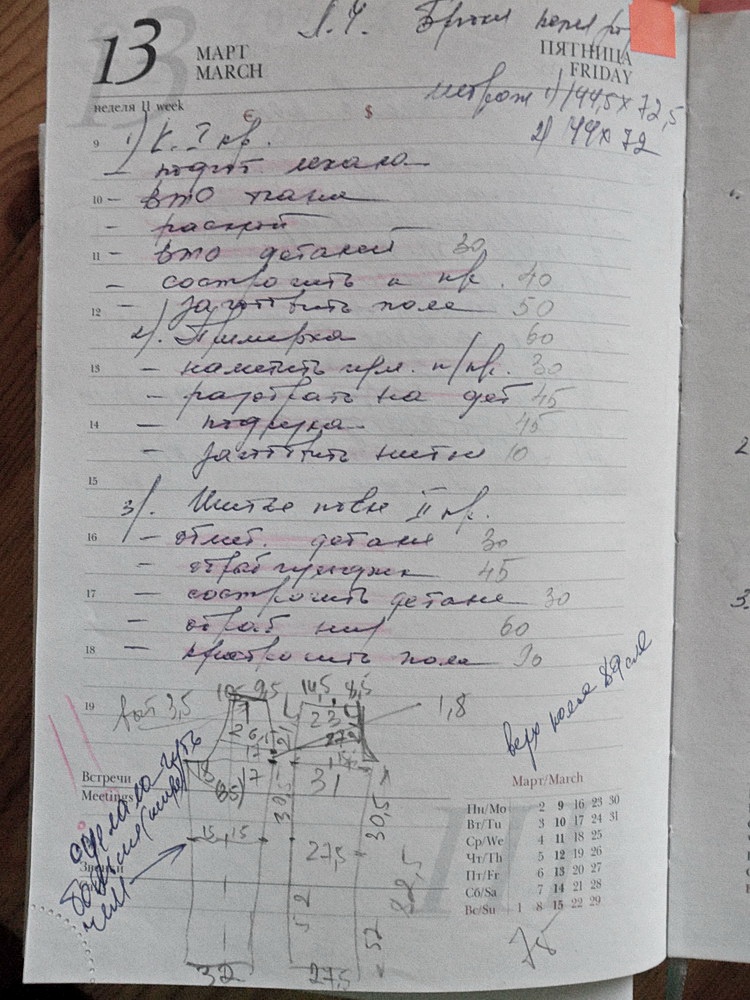 13
МАРТ
MARCH
ПЯТНИЦА
FRIDAY
неделя 11 week
€ $
метраж 1) 144,5 x 72,5
2) 144 x 72
9 1) к. I пр.
— подгот. лекала
10 — ВТО ткани
— раскрой
11 — ВТО деталей 30
— сострочить к пр. 40
12 — заготовить пояс 50
2). Примерка 60
13 — наметить 30
— разобрать на дет 45
14 — подрезка 45
— нитки 10
15
3). Шитье после II пр.
16 — отмет. детали 30
— 45
17 — сострочить детали 30
— обраб низ 60
18 — притрочить пояс 90
19
3,5
9,5 14,5 8,5
1,8
23
17
31
30,5
30,5
15 15
27,5
52
52
32
27,5
78
верх пояса 89 см
сделала чуть
больше
чем
Встречи
Meetings
Март/March
Пн/Mo 2 9 16 23 30
Вт/Tu 3 10 17 24 31
Ср/We 4 11 18 25
Чт/Th 5 12 19 26
Пт/Fr 6 13 20 27
Сб/Sa 7 14 21 28
Вс/Su 1 8 15 22 29
11
2
3.